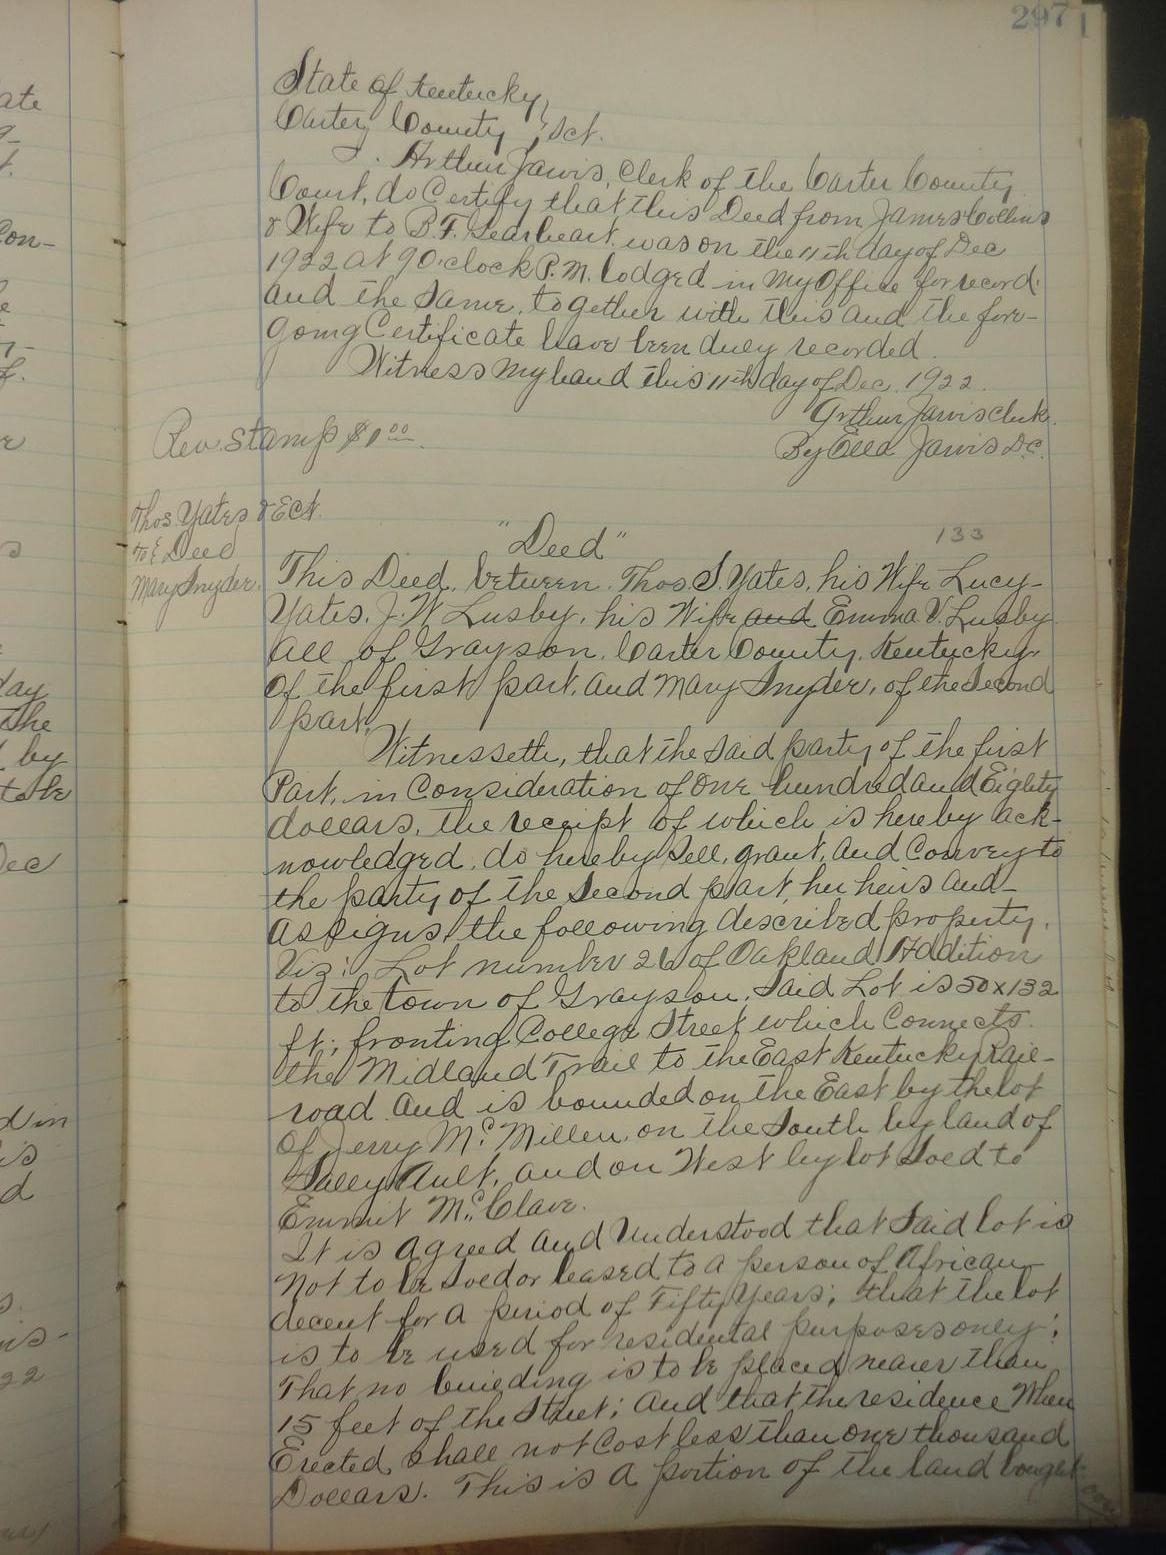 297
State of Kentucky,
Carter County, Sct.
I. Arthur Jarvis, Clerk of the Carter County
Court, do Certify that this Deed from James Collins
& Wife to B.F. Gearheart. was on the 11th day of Dec
1922 at 9 O'clock P.M. lodged in My Office for record
and the Same, together with this and the fore-
going Certificate have been duly recorded.
Witness My hand this 11th day of Dec. 1922.
Arthur Jarvis Clerk.
By Ella Jarvis D.C.
Rev. Stamp $1.00
Thos Yates & Ect.
To Deed
Mary Snyder.
"Deed"
133
This Deed, between Thos. S. Yates, his Wife Lucy
Yates, J.W. Lusby, his Wife and Emma V. Lusby
All of Grayson, Carter County, Kentucky
Of the first part, and Mary Snyder, of the Second
part.
Witnesseth, that the Said party of the first
Part, in Consideration of One hundred and Eighty
dollars, the receipt of which is hereby ack-
nowledged, do hereby Sell, grant, and Convey to
the party of the Second part, her heirs and
Assigns, the following described property,
Viz: Lot number 26 of Oakland Addition
to the town of Grayson, Said Lot is 50x132
ft; fronting College Street which Connects
the Midland Trail to the East Kentucky Rail-
road And is bounded on the East by the lot
Of Jerry McMillen, on the South by land of
Sally Ault, and on West by lot Sold to
Emmit McClave.
It is agreed and Understood that Said lot is
Not to be Sold or leased to a person of African
decent for a period of Fifty Years; that the lot
is to be used for residental purposes only;
That no building is to be placed nearer than
15 feet of the Street; And that the residence When
Erected, Shall not Cost less than one thousand
Dollars. This is a portion of the land bought
ate
Con-
day
the
by
to be
Dec
d in
is
d
22